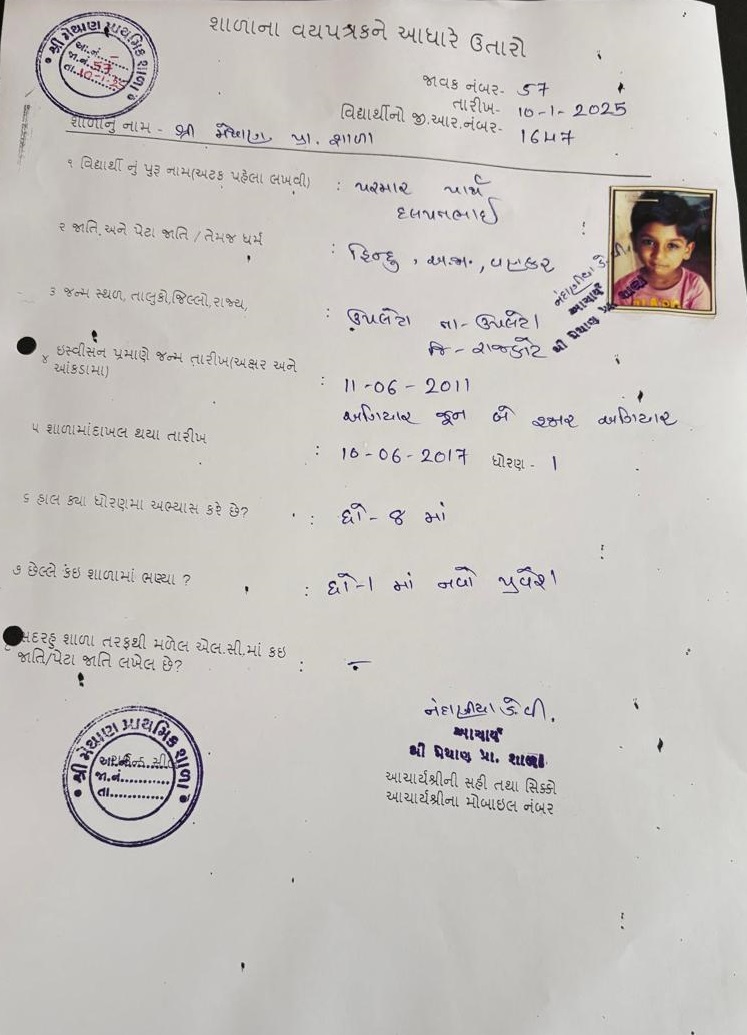 શાળાના વયપત્રકને આધારે ઉતારો
શ્રી મેથાણ પ્રાથમિક શાળા
આ.નં.
જા.નં. 57
તા. 10-1-25
જાવક નંબર- 57
તારીખ- 10-1-2025
વિદ્યાર્થીનો જી.આર.નંબર- 1647
શાળાનું નામ - શ્રી મેથાણ પ્રા. શાળા
૧ વિદ્યાર્થી નું પુરૂ નામ(અટક પહેલા લખવી) : પરમાર પાર્થ
દલપતભાઈ
૨ જાતિ, અને પેટા જાતિ / તેમજ ધર્મ : હિન્દુ, અ.જા., વણકર
નંદાણીયા કે. વી.
આચાર્ય
શ્રી મેથાણ પ્રા. શાળા
૩ જન્મ સ્થળ, તાલુકો,જિલ્લો,રાજ્ય, : ઉપલેટા તા- ઉપલેટા
જિ - રાજકોટ
૪ ઇસ્વીસન પ્રમાણે જન્મ તારીખ(અક્ષર અને
આંકડામા) : 11-06-2011
અગિયાર જૂન બે હજાર અગિયાર
૫ શાળામાંદાખલ થયા તારીખ : 10-06-2017 ધોરણ - 1
૬ હાલ ક્યા ધોરણમા અભ્યાસ કરે છે? : ધો- ૪ માં
૭ છેલ્લે કંઇ શાળામાં ભણ્યા ? : ધો-1 માં નવો પ્રવેશ
સદરહુ શાળા તરફથી મળેલ એલ.સી.માં કઇ
જાતિ/પેટા જાતિ લખેલ છે? : -
નંદાણીયા કે. વી.
આચાર્ય
શ્રી મેથાણ પ્રા. શાળા
આચાર્યશ્રીની સહી તથા સિક્કો
આચાર્યશ્રીના મોબાઇલ નંબર
શ્રી મેથાણ પ્રાથમિક શાળા
જા.નં.
તા.